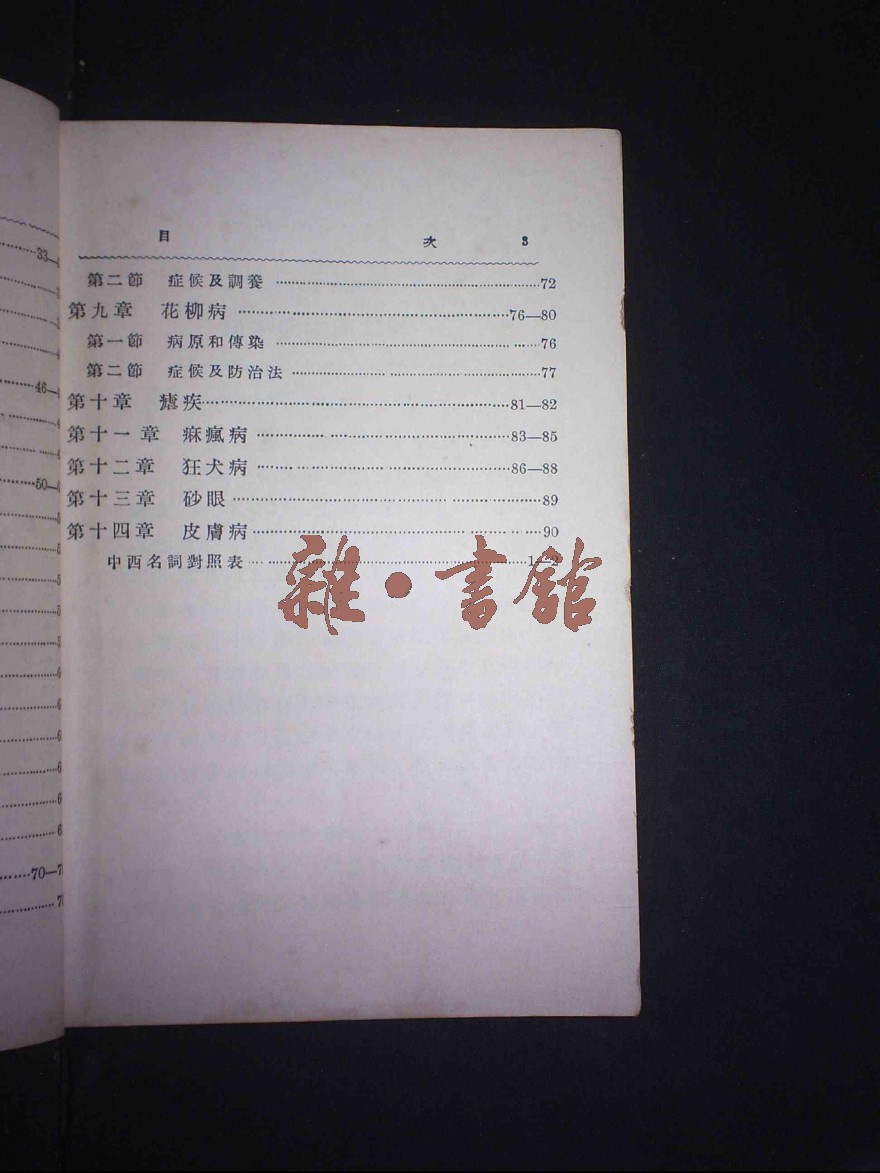 33—
46—
50—
70—7
目 次 3
第二節 症候及調養 72
第九章 花柳病 76—80
第一節 病原和傳染 76
第二節 症候及防治法 77
第十章 瘧疾 81—82
第十一章 痳瘋病 83—85
第十二章 狂犬病 86—88
第十三章 砂眼 89
第十四章 皮膚病 90
中西名詞對照表 1—2
雜·書館